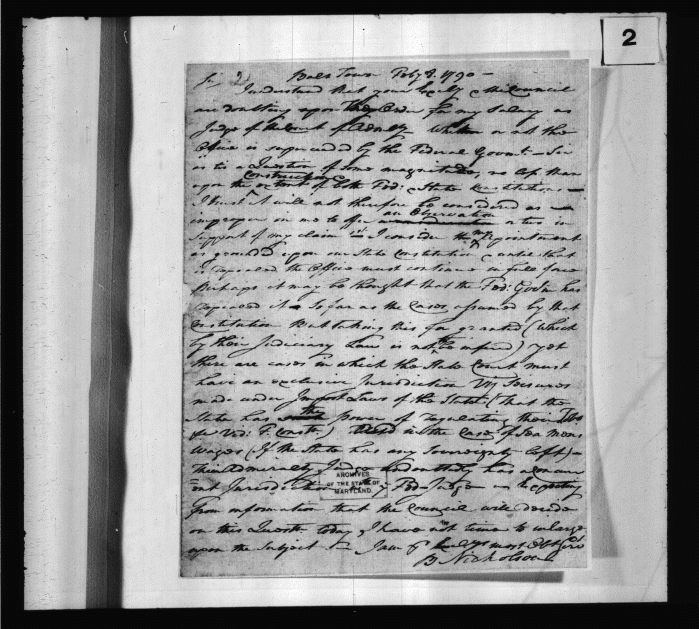 2
Sir Balt Town Feby 8. 1790 —
I understand that your Excelly & the Council
are doubting upon the Order for my Salary as
Judge of the Court of Admlty Whether or not the
Office is superceded by the Federal Govmt — Sir
as tis a Question of some magnitude, no less than
Construction
upon the extent of both Fed: & State Constitutions —
I trust it will not therefore be considered as
an Observation
improper in me to offer or two in
Support of my claim — I consider the Appointment
as grounded upon our State Constitution & until that
is repealed the Office must continue in full force
Perhaps it may be thought that the Fed: Govt has
repealed it so far as the Cases assumed by that
Constitution But taking this for granted (Which
by their Judiciary Law is not to be inferred) yet
there are cases in which the State Court must
have an exclusive Jurisdiction Viz Seizures
made under Import Laws of the State (That the
the
State has Power of regulating their
Vid: F. Constn) in the Case of Sea mens
Wages (If the State has any Sovereignty left)
the Admiralty Judge undoubtedly has a concurr
ent Jurisdiction Fed Judge
from information that the Council will decide
on this Questn today, I have not time to enlarge
upon the Subject I am yr Excellys most Obt Serv
B Nicholson
ARCHIVES
OF THE STATE OF
MARYLAND